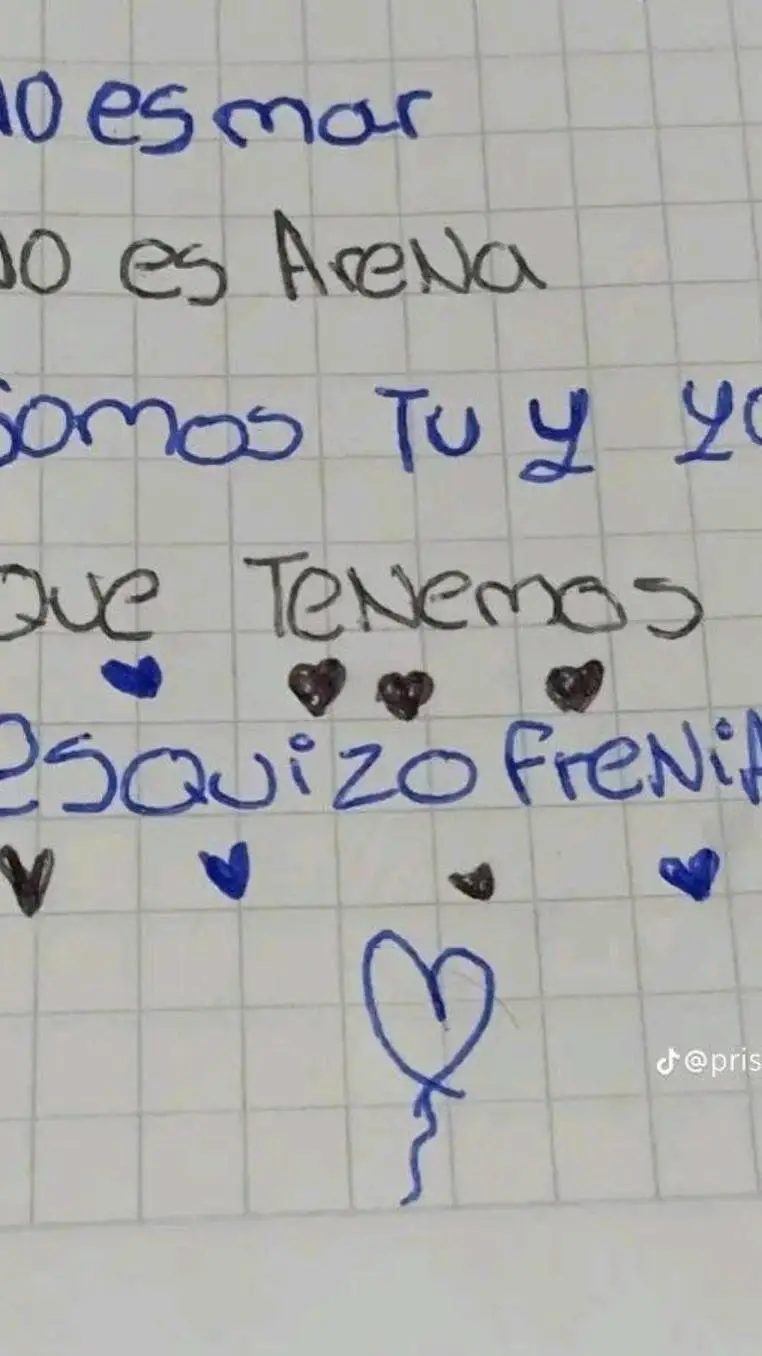 no es mar
no es AreNa
somos Tu y yo
que TeNemos
esquizofreNiA
@pris